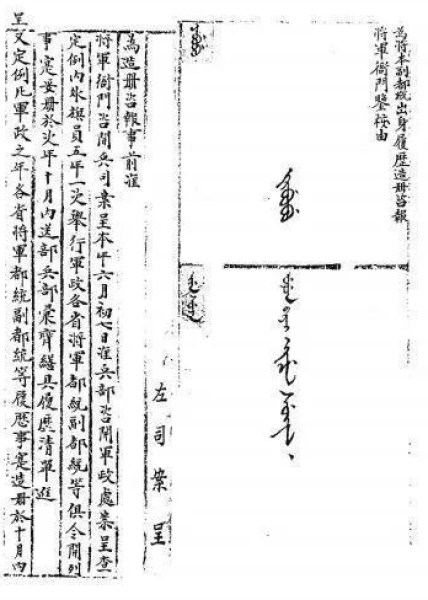 為將本副都統出身履歷造冊咨報
將軍衙門鑒由
左司案呈
為造冊咨報事前准
將軍衙門咨開兵司案呈本年六月初七日准兵部咨開軍政處案呈查
定例內外旗員五年一次舉行軍政各省將軍都統副都統等俱令開列
事寔冊於年十月內送部兵部彙齊繕具履歷清單進
呈又定例凡軍政之年各省將軍都統副都統等履歷事寔造冊於十月內